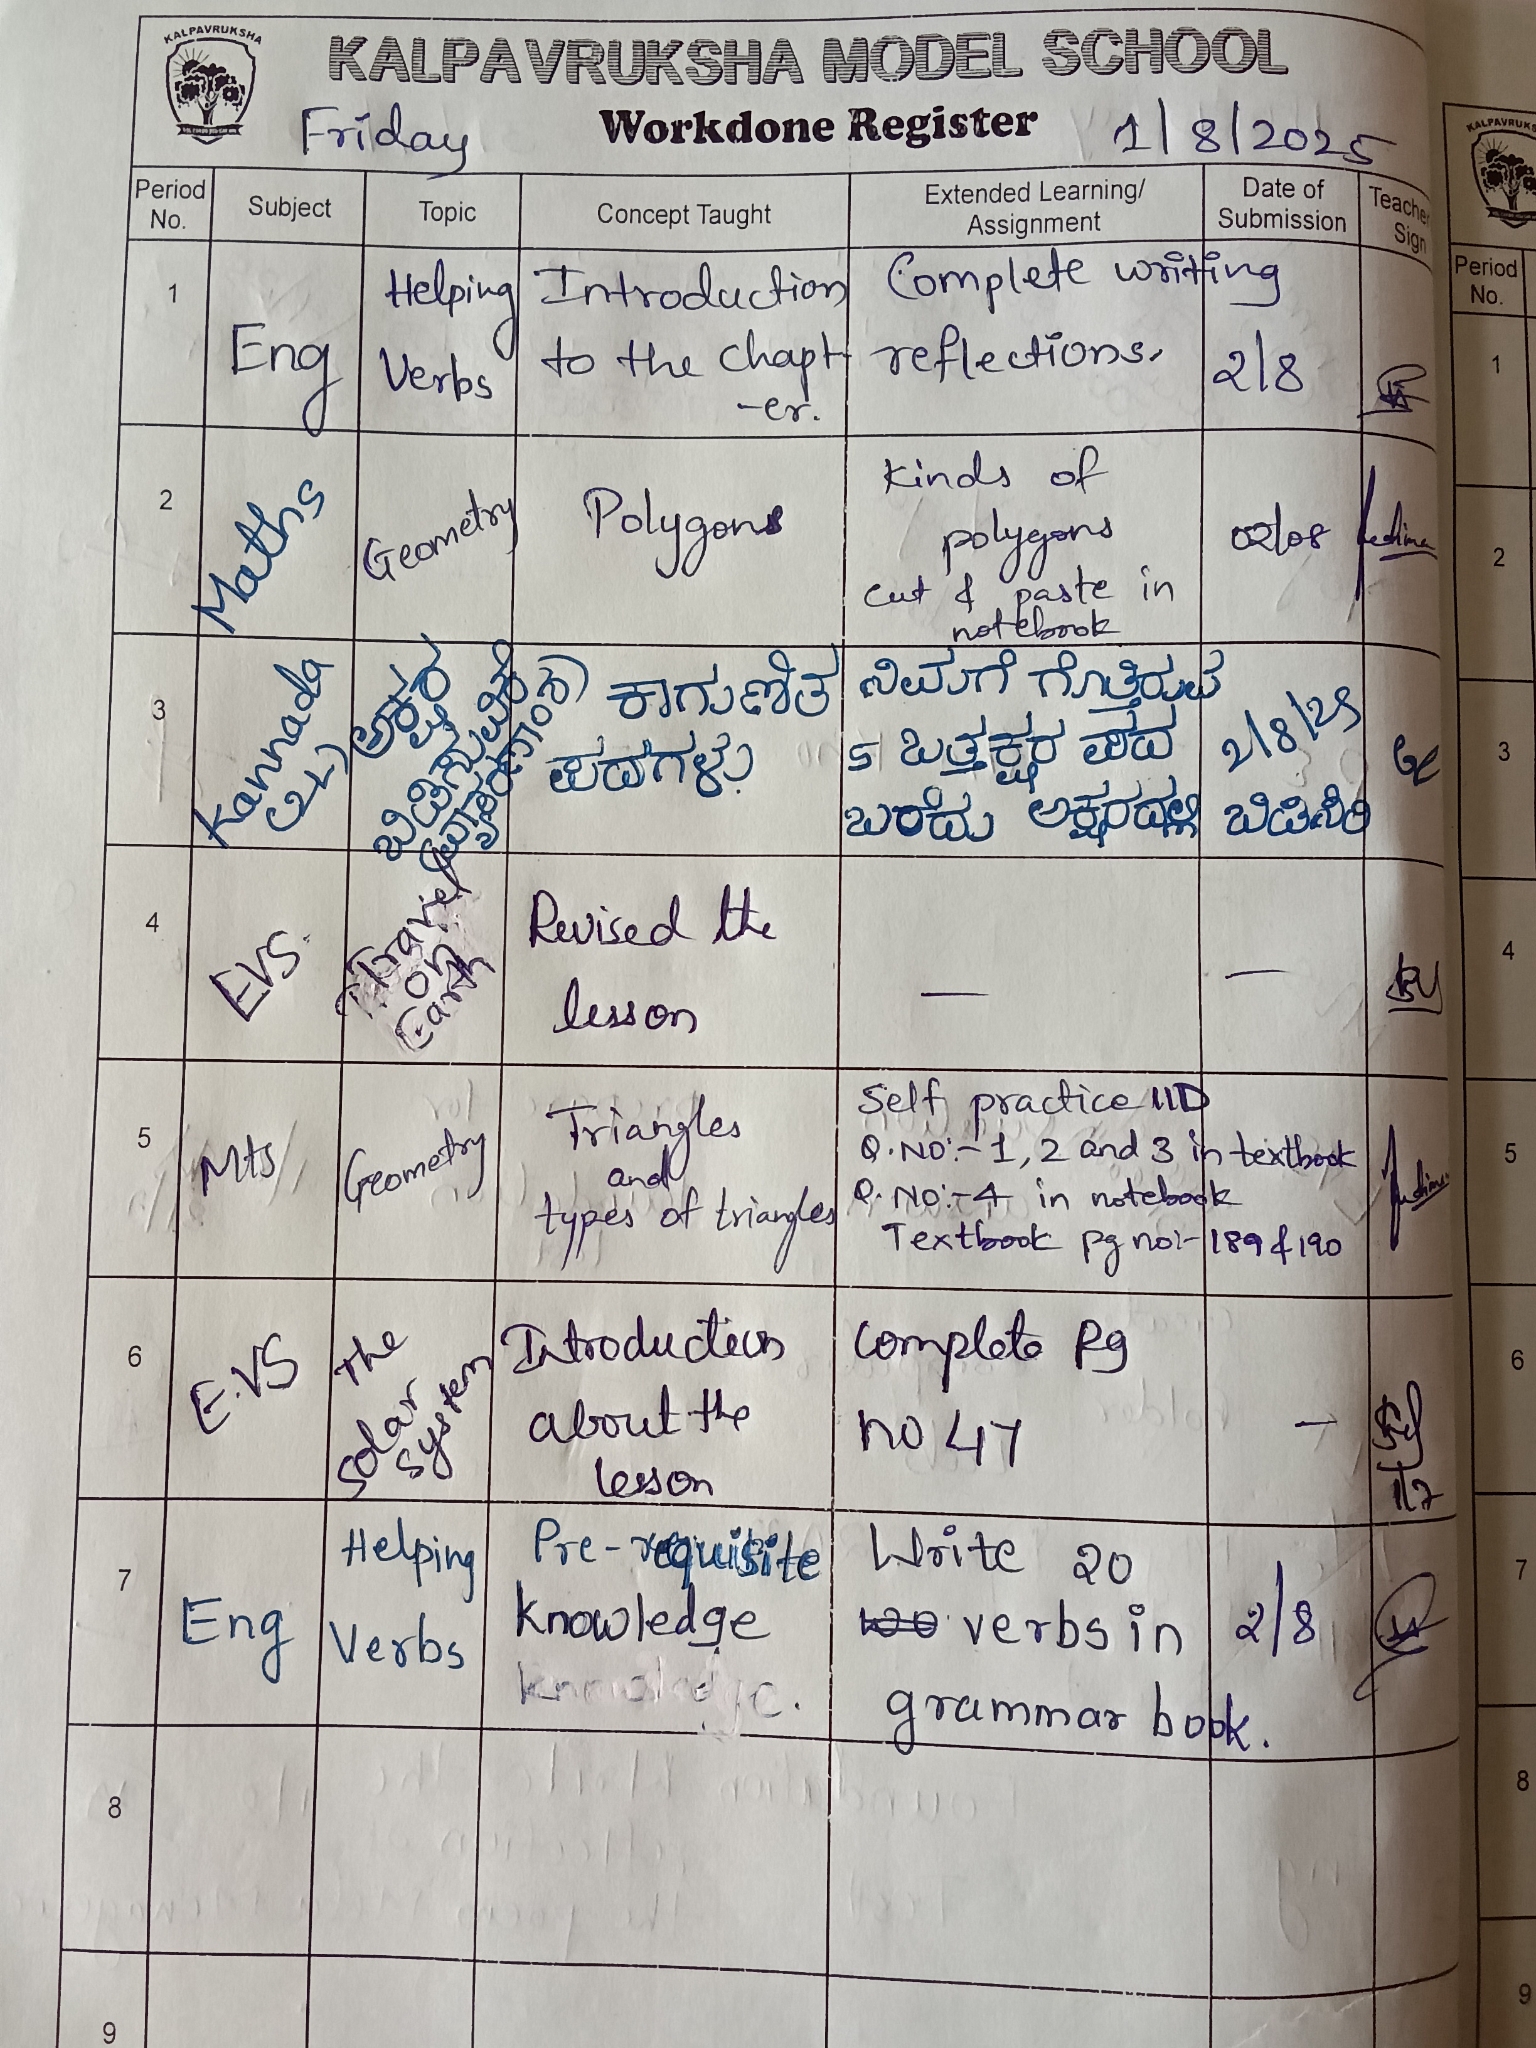 KALPAVRUKSHA
KALPAVRUKSHA MODEL SCHOOL
Friday Workdone Register 1/8/2025
Period No. Subject Topic Concept Taught Extended Learning/ Assignment Date of Submission Teacher Sign
1 Eng Helping Verbs Introduction to the chapt-er. Complete writing reflections. 2/8
2 Maths Geometry Polygons Kinds of polygons cut & paste in notebook 02/08
3 Kannada (2L) ಅಕ್ಷರ ಕಾಗುಣಿತ ಪದಗಳು ನಿಮಗೆ ಗೊತ್ತಿರುವ 5 ಒತ್ತಕ್ಷರ ಪದ ಬರೆದು ಅಕ್ಷರದಲ್ಲಿ ಬಿಡಿಸಿರಿ 2/8/25
4 EVS Travel on Earth Revised the lesson — —
5 Mts Geometry Triangles and types of triangles Self practice 11D
Q.NO:-1, 2 and 3 in textbook
Q. NO:-4 in notebook
Textbook pg no:- 189 & 190
6 E.VS The solar system Introduction about the lesson complete Pg no 47 —
7 Eng Helping Verbs Pre-requisite knowledge Write 20 verbs in grammar book. 2/8
8
9
KALPAVRUKS
Period No.
1
2
3
4
5
6
7
8
9